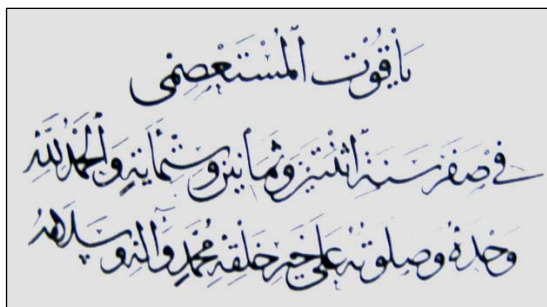 ياقوت المستعصمي
في صفر سنة اثنتين وثمانين وستمأية والحمد لله
وحده وصلوته على خير خلقه محمد وآله وسلامه